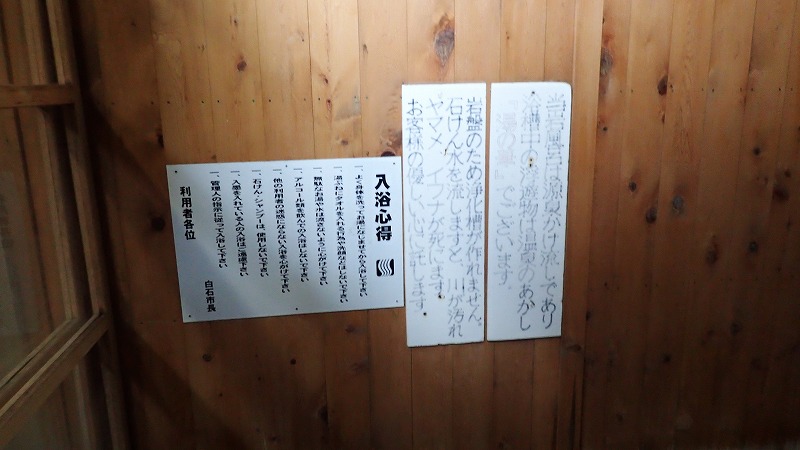 当岩風呂は源泉かけ流しであり
浴槽中の浮遊物は温泉のあかし
『湯の華』でございます。
岩盤のため浄化槽が作れません。
石けん水を流しますと、川が汚れ
ヤマメ、イワナが死にます。
お客様の優しい
入浴心得
一、よく身体を洗ってお湯になじませてから入浴して下さい
一、湯ぶねにタオルを入れる行為や洗顔などはしないで下さい
一、無駄なお湯や水は流さないように心がけて下さい
一、アルコール類を飲んでの入浴はしないで下さい
一、他の利用者の迷惑にならない入浴を心がけて下さい
一、石けん・シャンプーは、使用しないで下さい
一、入墨を入れている人の入浴はご遠慮下さい
一、管理人の指示に従って入浴して下さい
白石市長
利用者各位